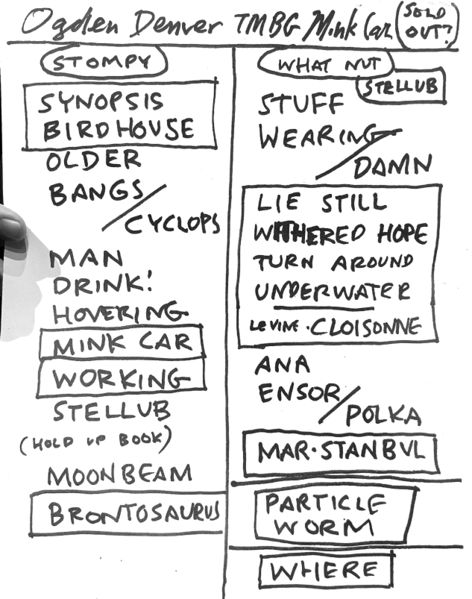 Ogden Denver TMBG Mink Car (SOLD OUT?)
STOMPY
SYNOPSIS
BIRDHOUSE
OLDER
BANGS / CYCLOPS
MAN
DRINK!
HOVERING
MINK CAR
WORKING
STELLUB
(HOLD UP BOOK)
MOONBEAM
BRONTOSAURUS
WHAT NUT
STELLUB
STUFF
WEARING / DAMN
LIE STILL
WITHERED HOPE
TURN AROUND
UNDERWATER
LEVINE · CLOISONNE
ANA
ENSOR / POLKA
MAR · STANBUL
PARTICLE
WORM
WHERE